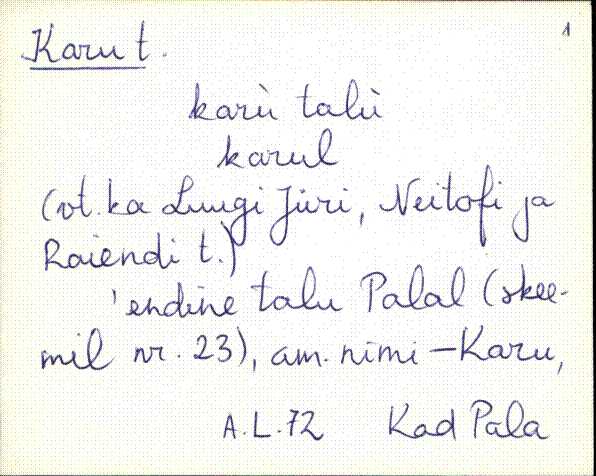 Karu t. 1
karù talù
karul
(vt. ka Luugi Jüri, Neitofi ja
Raiendi t.)
'endine talu Palal (skee-
mil nr. 23), am. nimi – Karu,
A.L.72 Kad Pala